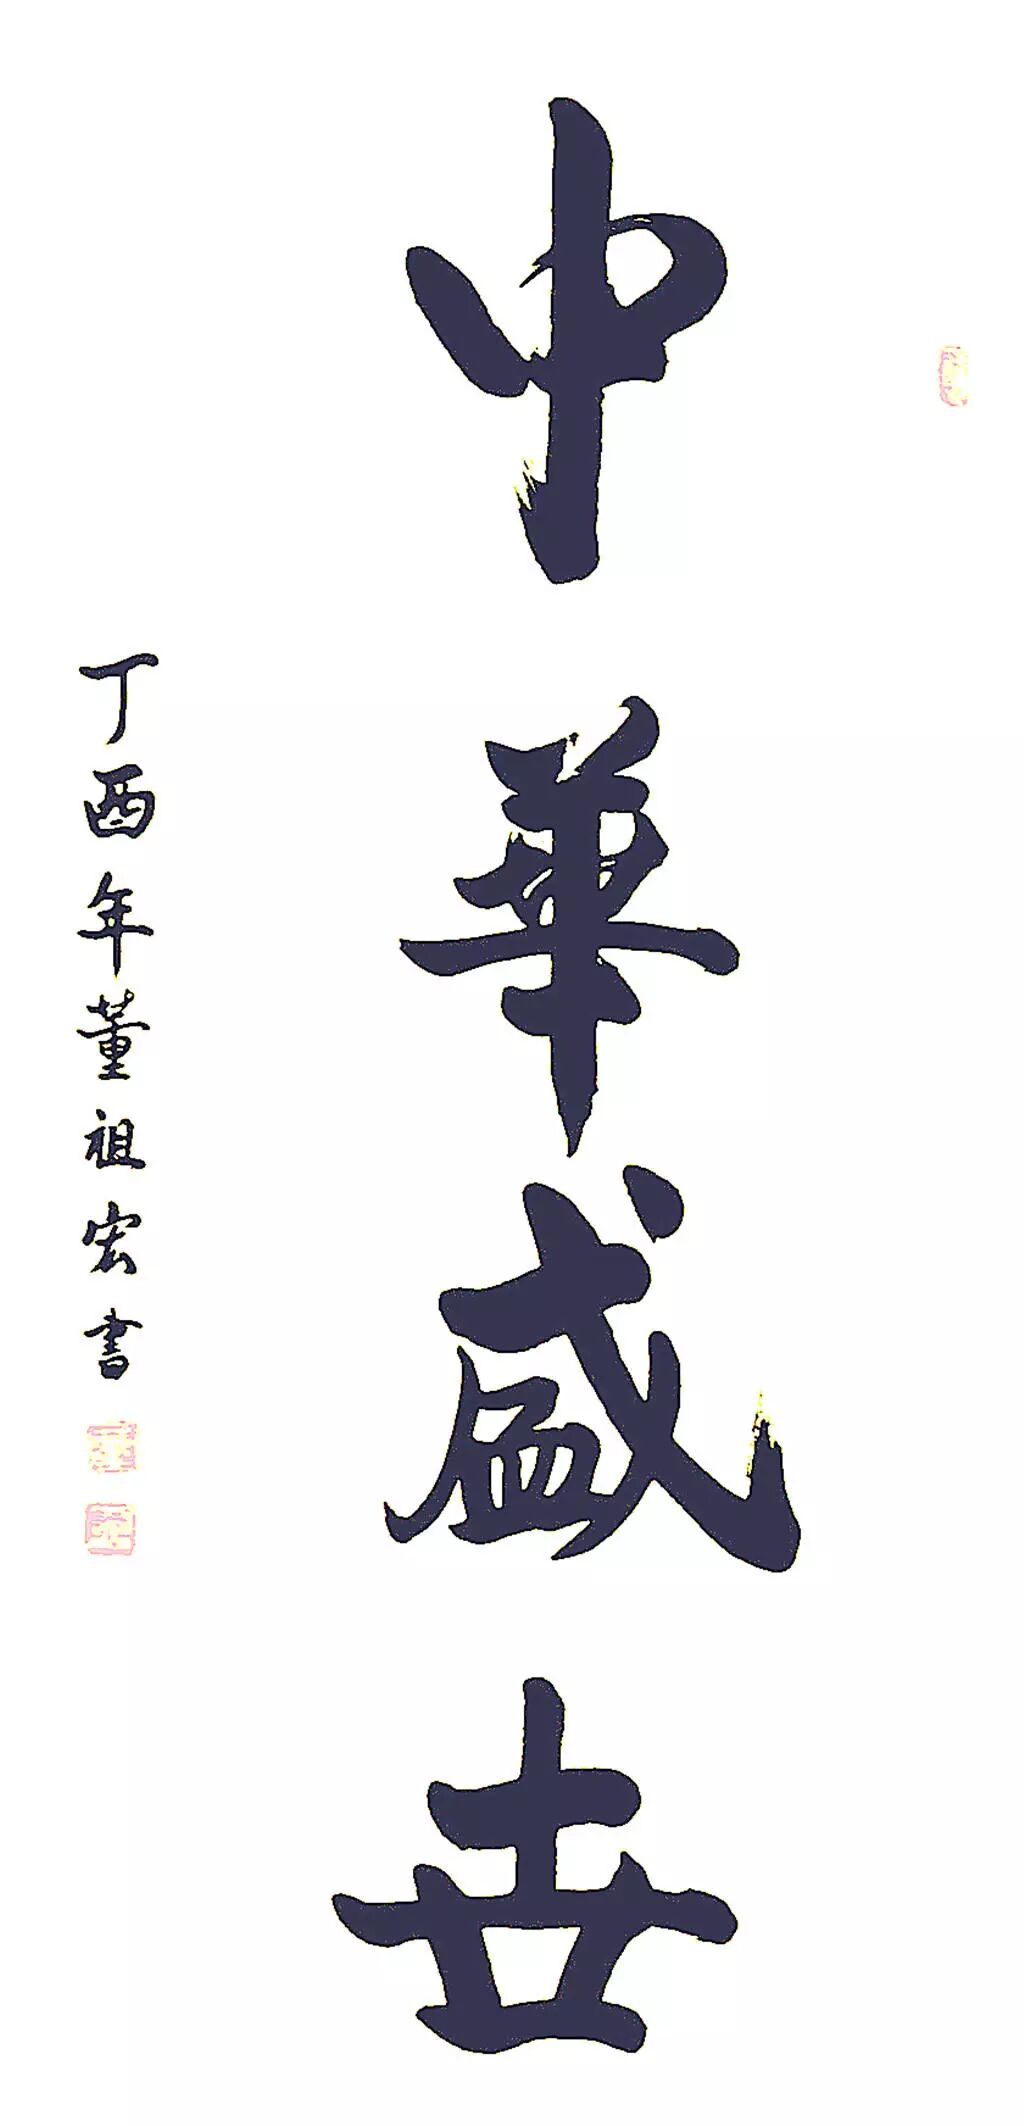 中華盛世
丁酉年董祖宏書